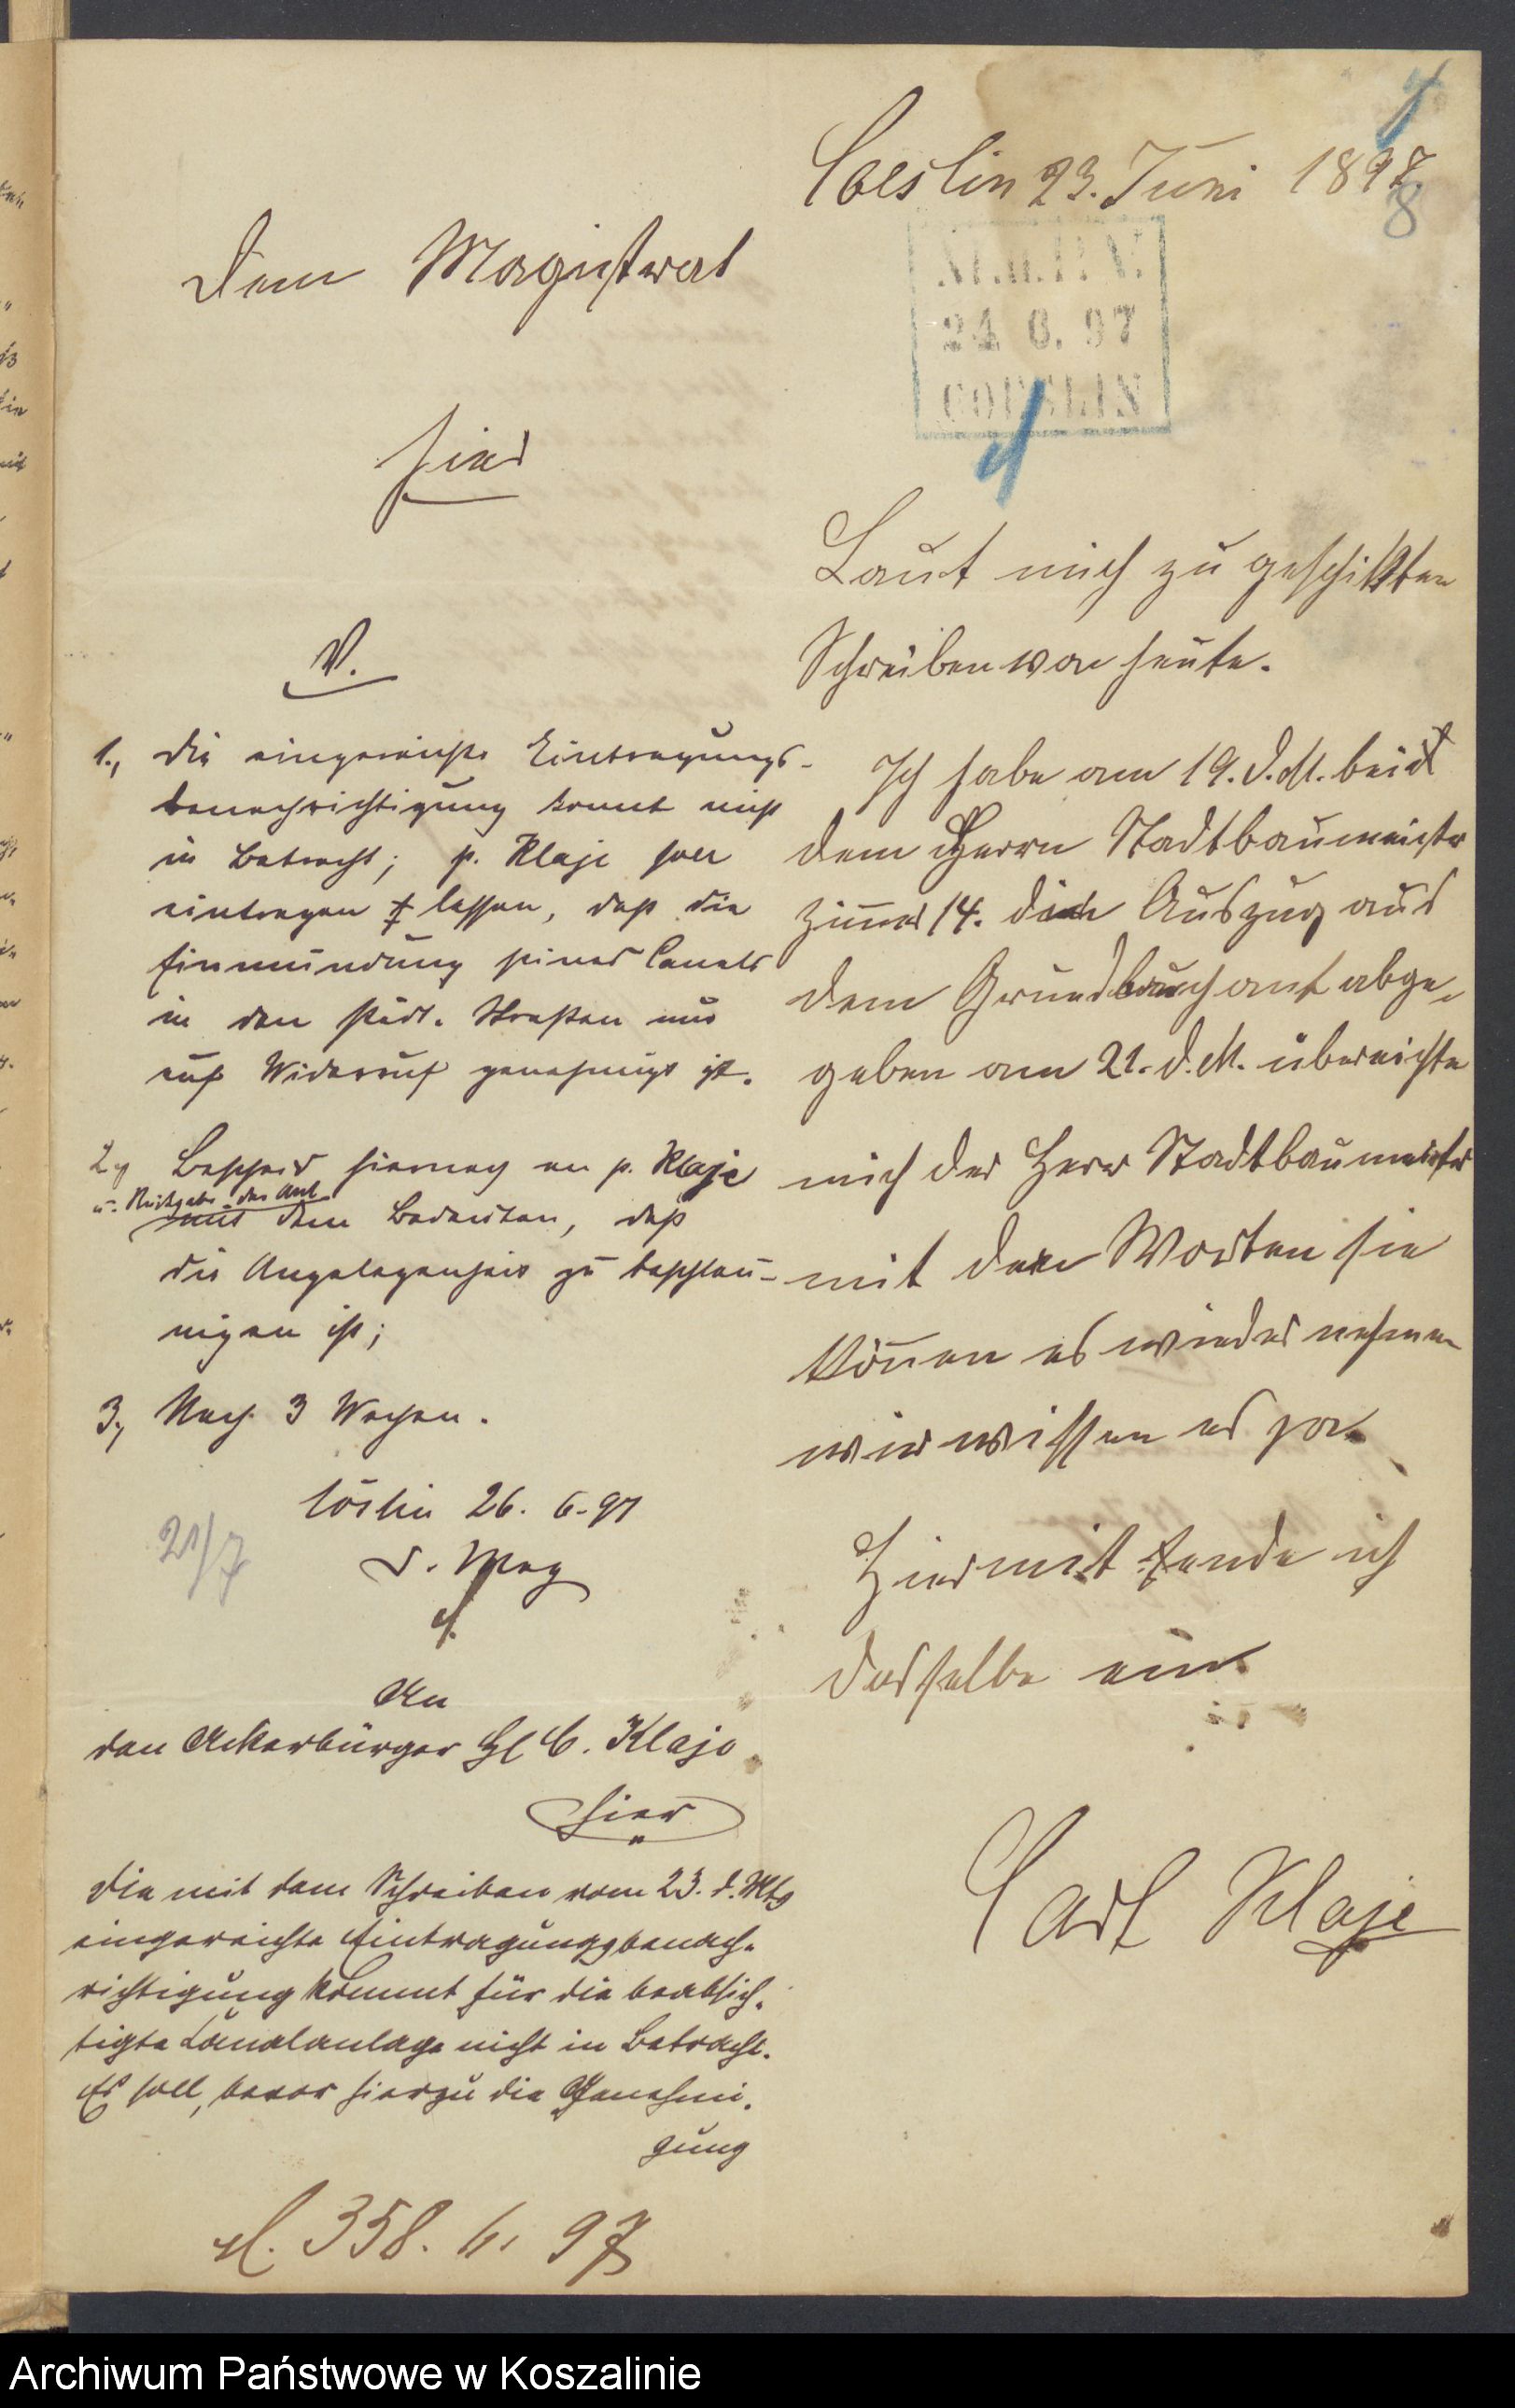 Coeslin 23. Juni 1897.
8
Dem Magistrat
hier
24 6. 97
COESLIN
Laut mich zu geschikkten
Schreiben von heute.
Ich habe am 19. d. M. bei
dem Herrn Stadtbaumeister
Zimmer 14. den Auszug aus
dem Grundbuchamt abge-
geben am 21. d. M. übereichte
mich der Herr Stadtbaumeister
mit den Worten sie
können es wieder nehmen
wir wissen es ja.
Hiermit sende ich
dasselbe ein.
Carl Klaje
V.
1., Die eingereichte Eintragungs-
benachrichtigung kommt nicht
in Betracht; p. Klaje soll
eintragen lassen, daß die
Einmündung seines Canals
in den städt. Straßen nur
auf Widerruf genehmigt ist.
2., Bescheid hiernach an p. Klaje
u. Rückgabe der Anl.
mit dem Bedeuten, daß
die Angelegenheit zu beschleu-
nigen ist;
3., Nach 3 Wochen.
Cöslin 26. 6. 97
D. Mag
21/7
An
den Ackerbürger H. C. Klaje
hier
Die mit dem Schreiben vom 23. d. Mts
eingereichte Eintragungsbenach-
richtigung kommt für die beabsich-
tigte Canalanlage nicht in Betracht.
Es soll, bevor hierzu die Genehmi-
gung
358. 6. 97
Archiwum Państwowe w Koszalinie